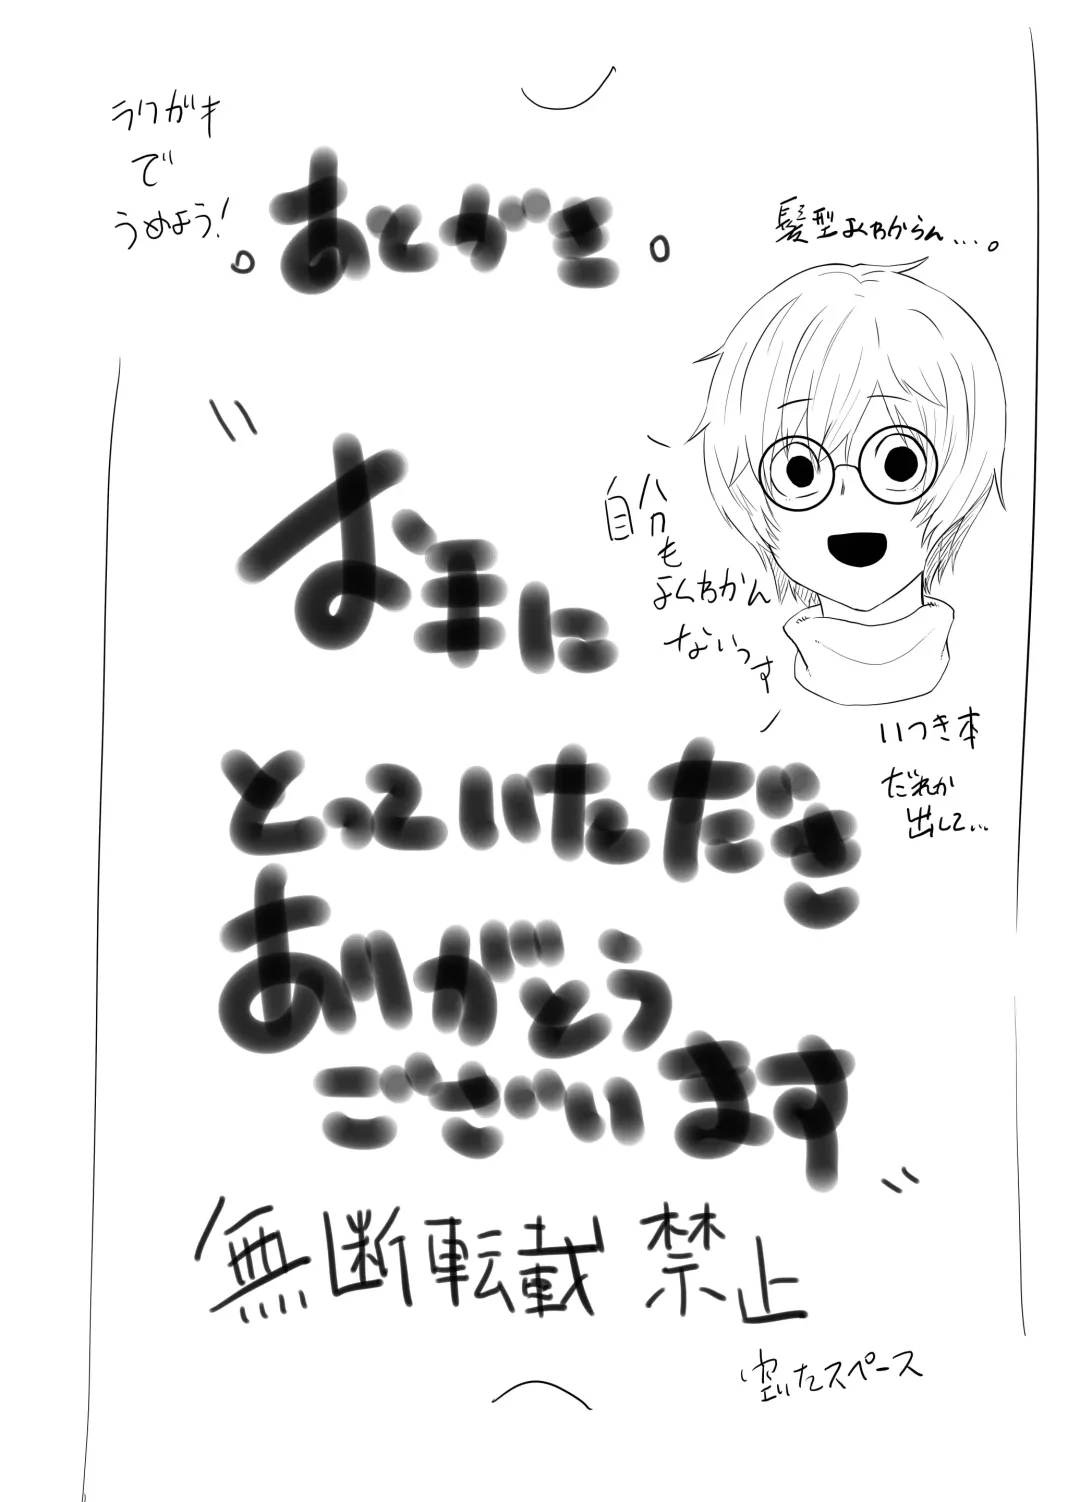 ラクガキ
で
うめよう!
。あとがき。
髪型よくわからん...。
"お手に
自分
も
よくわかん
ないっす
いつき本
だれか
出して...
とっていただき
ありがとう
ございます"
無断転載禁止
空いたスペース